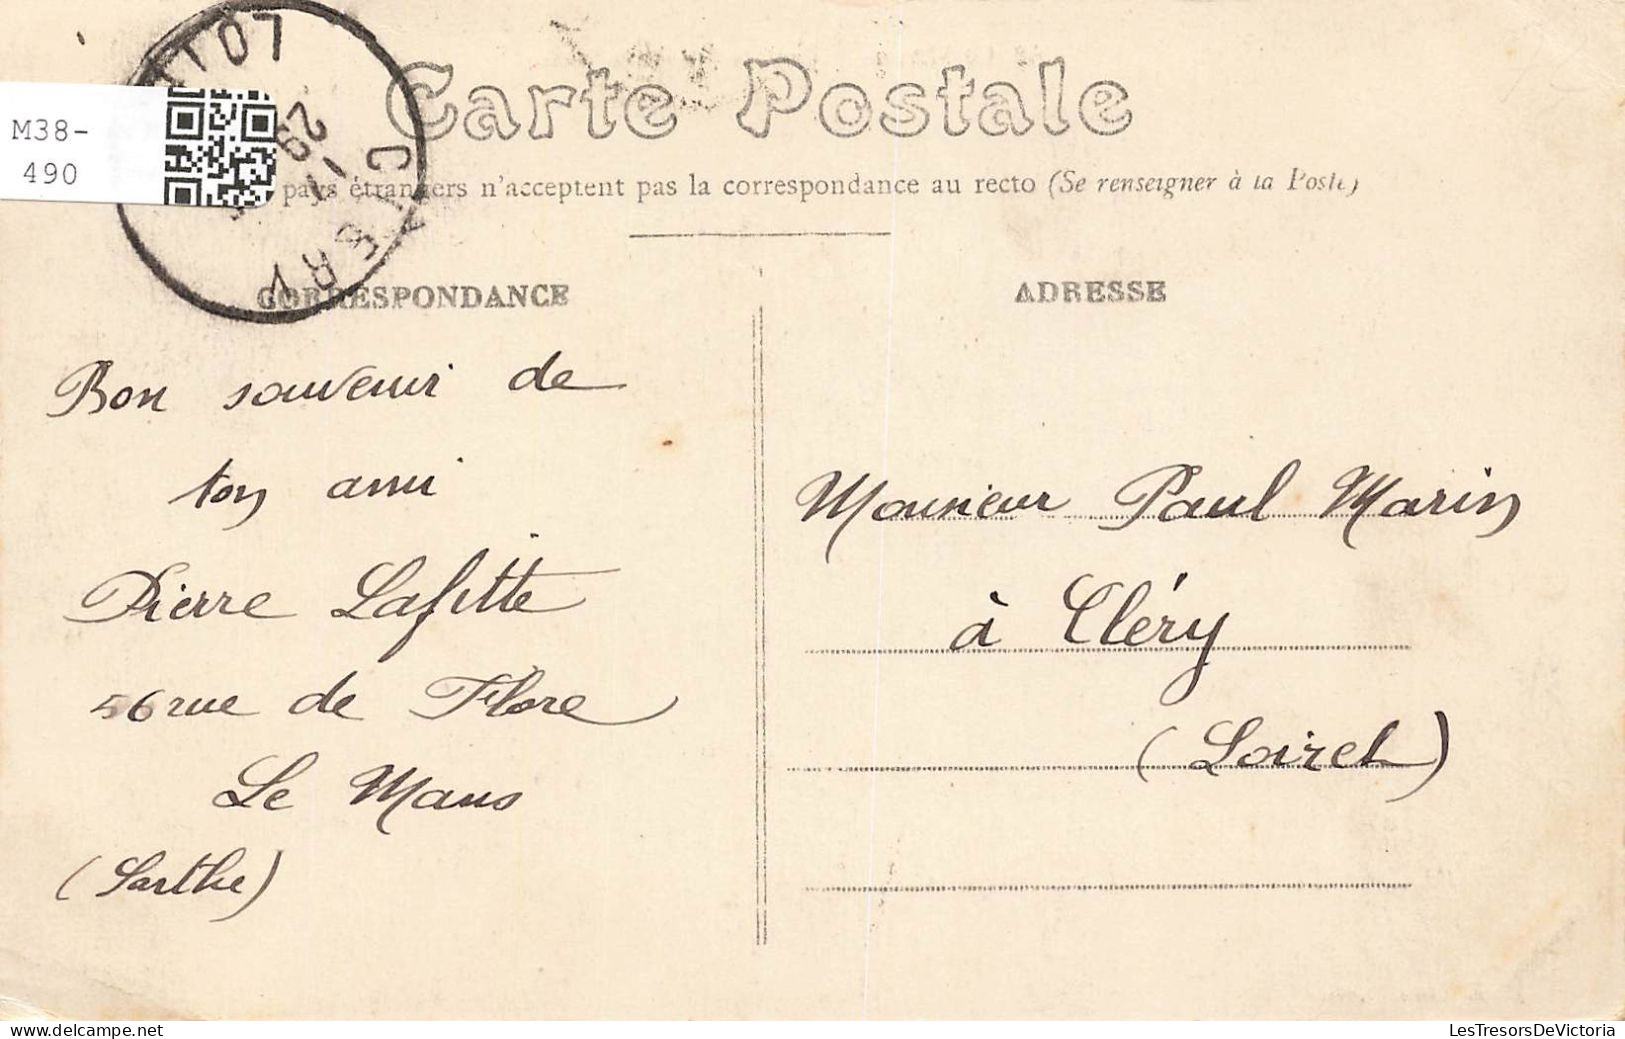 Carte Postale
M38-
490
pays étrangers n'acceptent pas la correspondance au recto (Se renseigner à la Poste)
CLERY
29
CORRESPONDANCE
ADRESSE
Bon souvenir de
ton ami
Pierre Lafitte
56 rue de Flore
Le Mans
(Sarthe)
Monsieur Paul Marin
à Cléry
(Loiret)
LesTresorsDeVictoria